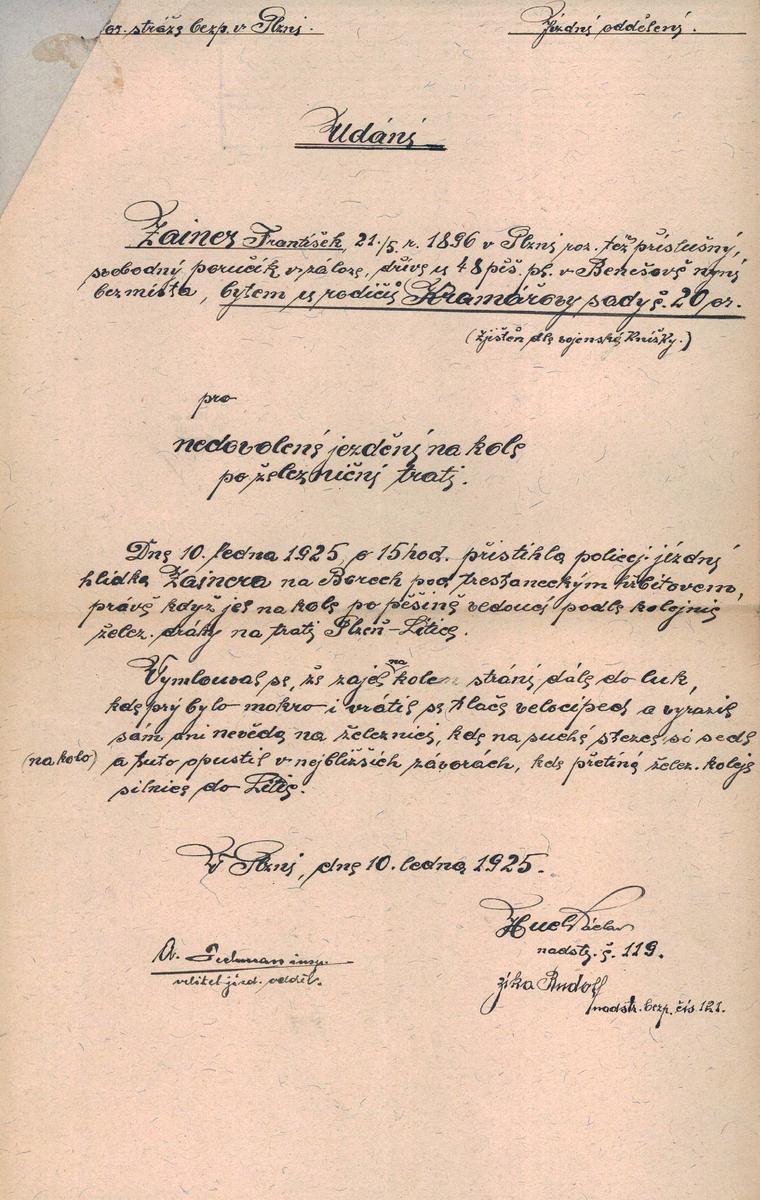 stráže bezp. v Plzni.
Jízdní oddělení.
Udání
Zainer František, 21./5. r. 1896 v Plzni roz. též příslušný,
svobodný poručík v záloze, dříve u 48 pěš. pl. v Benešově nyní
bez místa, bytem u rodičů Kramářovy sady č. 20 or.
(zjištěn dle vojenské knížky.)
pro
nedovolené jezdění na kole
po železniční trati.
Dne 10. ledna 1925 o 15 hod. přistihla policej. jízdní
hlídka Zainera na Borech pod trestaneckým hřbitovem,
právě když jel na kole po pěšině vedoucí podle kolejnic
želez. dráhy na trati Plzeň-Litice.
Vymlouval se, že zajel na kole strání dále do luk,
kde prý bylo mokro i vrátil se tlače velociped a vyrazil
sám ani nevěda na železnici, kde na suché stezce si sedl
(na kolo) a tuto opustil v nejbližších závorách, kde přetíná želez. koleje
silnice do Litic.
V Plzni, dne 10. ledna 1925.
Václav
nadstr. č. 119.
A. insp.
velitel jízd. odděl.
Zíka Rudolf
nadstr. bezp. čís. 121.